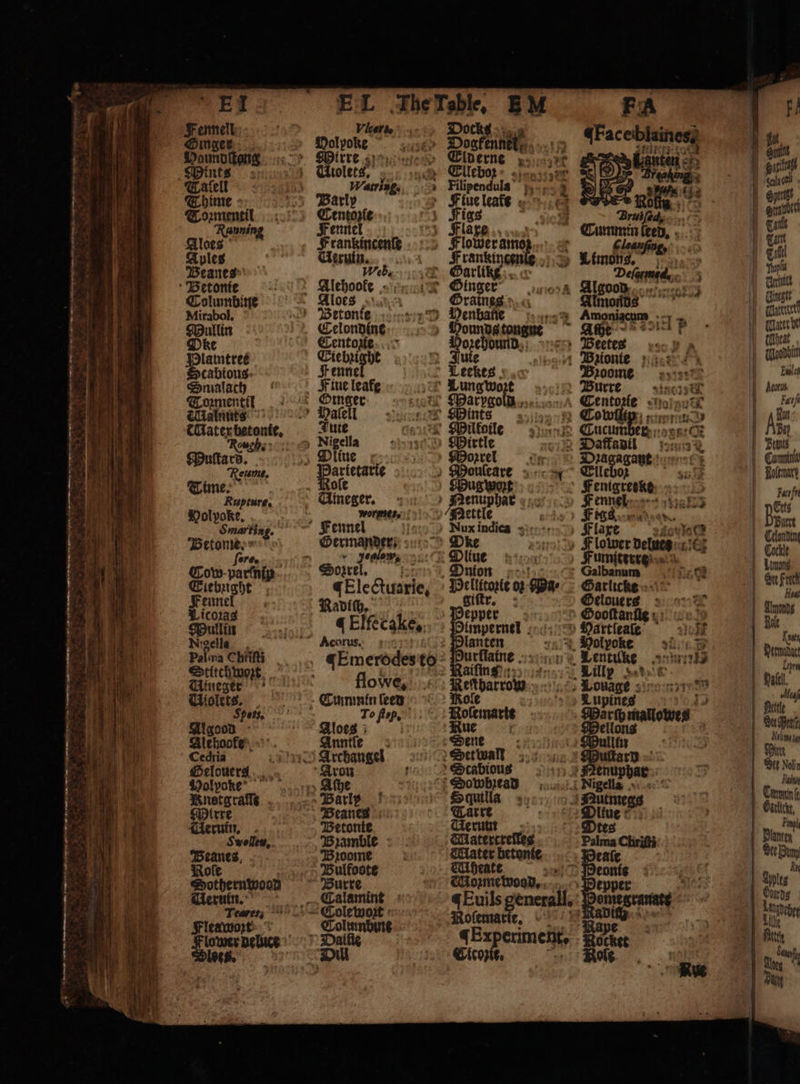 EI
EL The Table, EM
FA
Fennell
Ginger
Houndstong
Mints
Tasell
Thime
Tormentil
Running
Aloes
Aples
Beanes
Betonie
Columbine
Mirabol,
Mullin
Oke
Plaintree
Scabious
Smalach
Tormentil
Walnuts
Water betonie,
Rough,
Mustard,
Reume,
Time,
Rupture,
Holyoke,
Smarting,
Betonie,
sore,
Cow-parsnip
Eiebright
Fennel
Licoras
Mullin
Nigella
Palma Christi
Stitchwort,
Vineger
Violets,
Spots,
Algood
Alehoofe
Cedria
Gelouers
Holyoke
Knotgrasse
Mirre
Veruin,
Swollen,
Beanes,
Rose
Sothernwood
Veruin,
Teares,
Fleawort
Flower deluce
Sloes,
Vlcers,
Holyoke
Mirre
Violets,
Watring,
Barly
Centorie
Fennel
Frankincense
Veruin,
Web,
Alehoofe
Aloes
Betonie
Celondine
Centorie
Eiebright
Fennel
Fiue leafe
Ginger
Hasell
Iuie
Nigella
Oliue
Parietarie
Rose
Vineger,
wormes,
Fennel
Germander,
yealow,
Sorrel,
¶Electuarie,
Radish,
¶Elfecake,
Acorus,
¶Emerodes to
flowe,
Cummin seed
To stop,
Aloes
Annise
Archangel
Aron
Ashe
Barly
Beanes
Betonie
Bramble
Broome
Bulfoote
Burre
Calamint
Colewort
Columbine
Daisie
Dill
Docks
Dogfennel
Elderne
Ellebor
Filipendula
Fiue leafe
Figs
Flaxe
Floweramor
Frankincense
Garlike
Ginger
Graines
Henbane
Houndstongue
Horehound,
Iuie
Leekes
Lungwort
Marygold
Mints
Milfoile
Mirtle
Morrel
Mouseare
Mugwort
Nenuphar
Nettle
Nux indica
Oke
Oliue
Onion
Pellitorie or Ma-
gistr,
Pepper
Pimpernel
Planten
Purslaine
Raisins
Restharrow
Rose
Rosemarie
Rue
Sene
Setwall
Scabious
Sowbread
Squilla
Tarre
Veruin
Watercresses
Water betonie
Wheate
Wormewood,
¶Euils generall,
Rosemarie,
¶Experiment,
Cicorie,
¶Face blaines,
Planten
Breaking,
Rosin,
Bruised,
Cummin seed,
Cleansing,
Limons,
Deformed,
Algood
Almonds
Amoniacum
Ashe
Beetes
Brionie
Broome
Burre
Centorie
Cowslip
Cucumber
Daffadil
Dragagant
Ellebor
Fenigreeke
Fennel
Figs
Flaxe
Flower deluce
Fumiterre
Galbanum
Garlicke
Gelouers
Goosetansie
Hartsease
Holyoke
Lentilke
Lilly
Louage
Lupines
Marsh mallowes
Mellons
Mullin
Mustard
Nenuphar
Nigella
Nutmegs
Oliue
Otes
Palma Christi
Pease
Peonie
Pepper
Pomegranate
Radish
Rape
Rocket
Rose
Rue